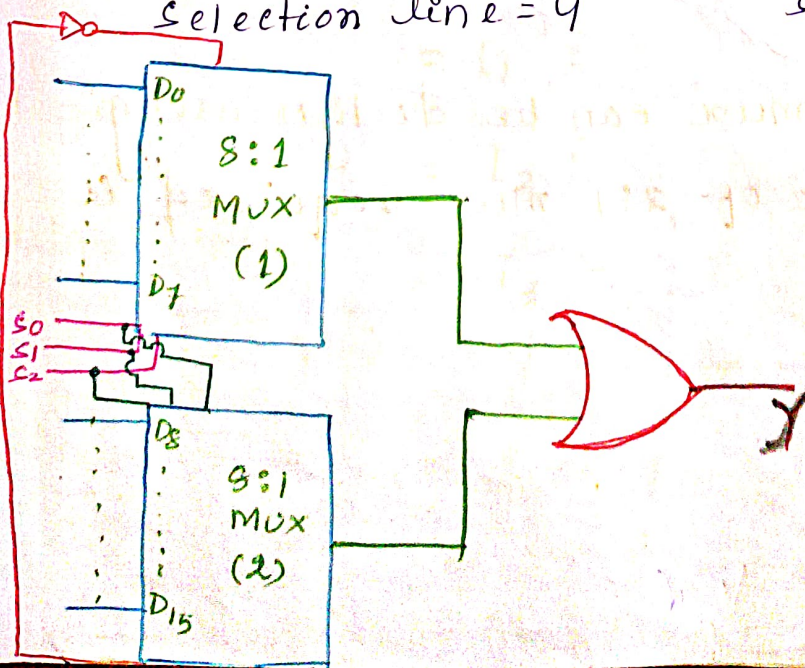 Selection line = 4
D0
8:1
MUX
(1)
D7
S0
S1
S2
D8
8:1
MUX
(2)
D15
Y